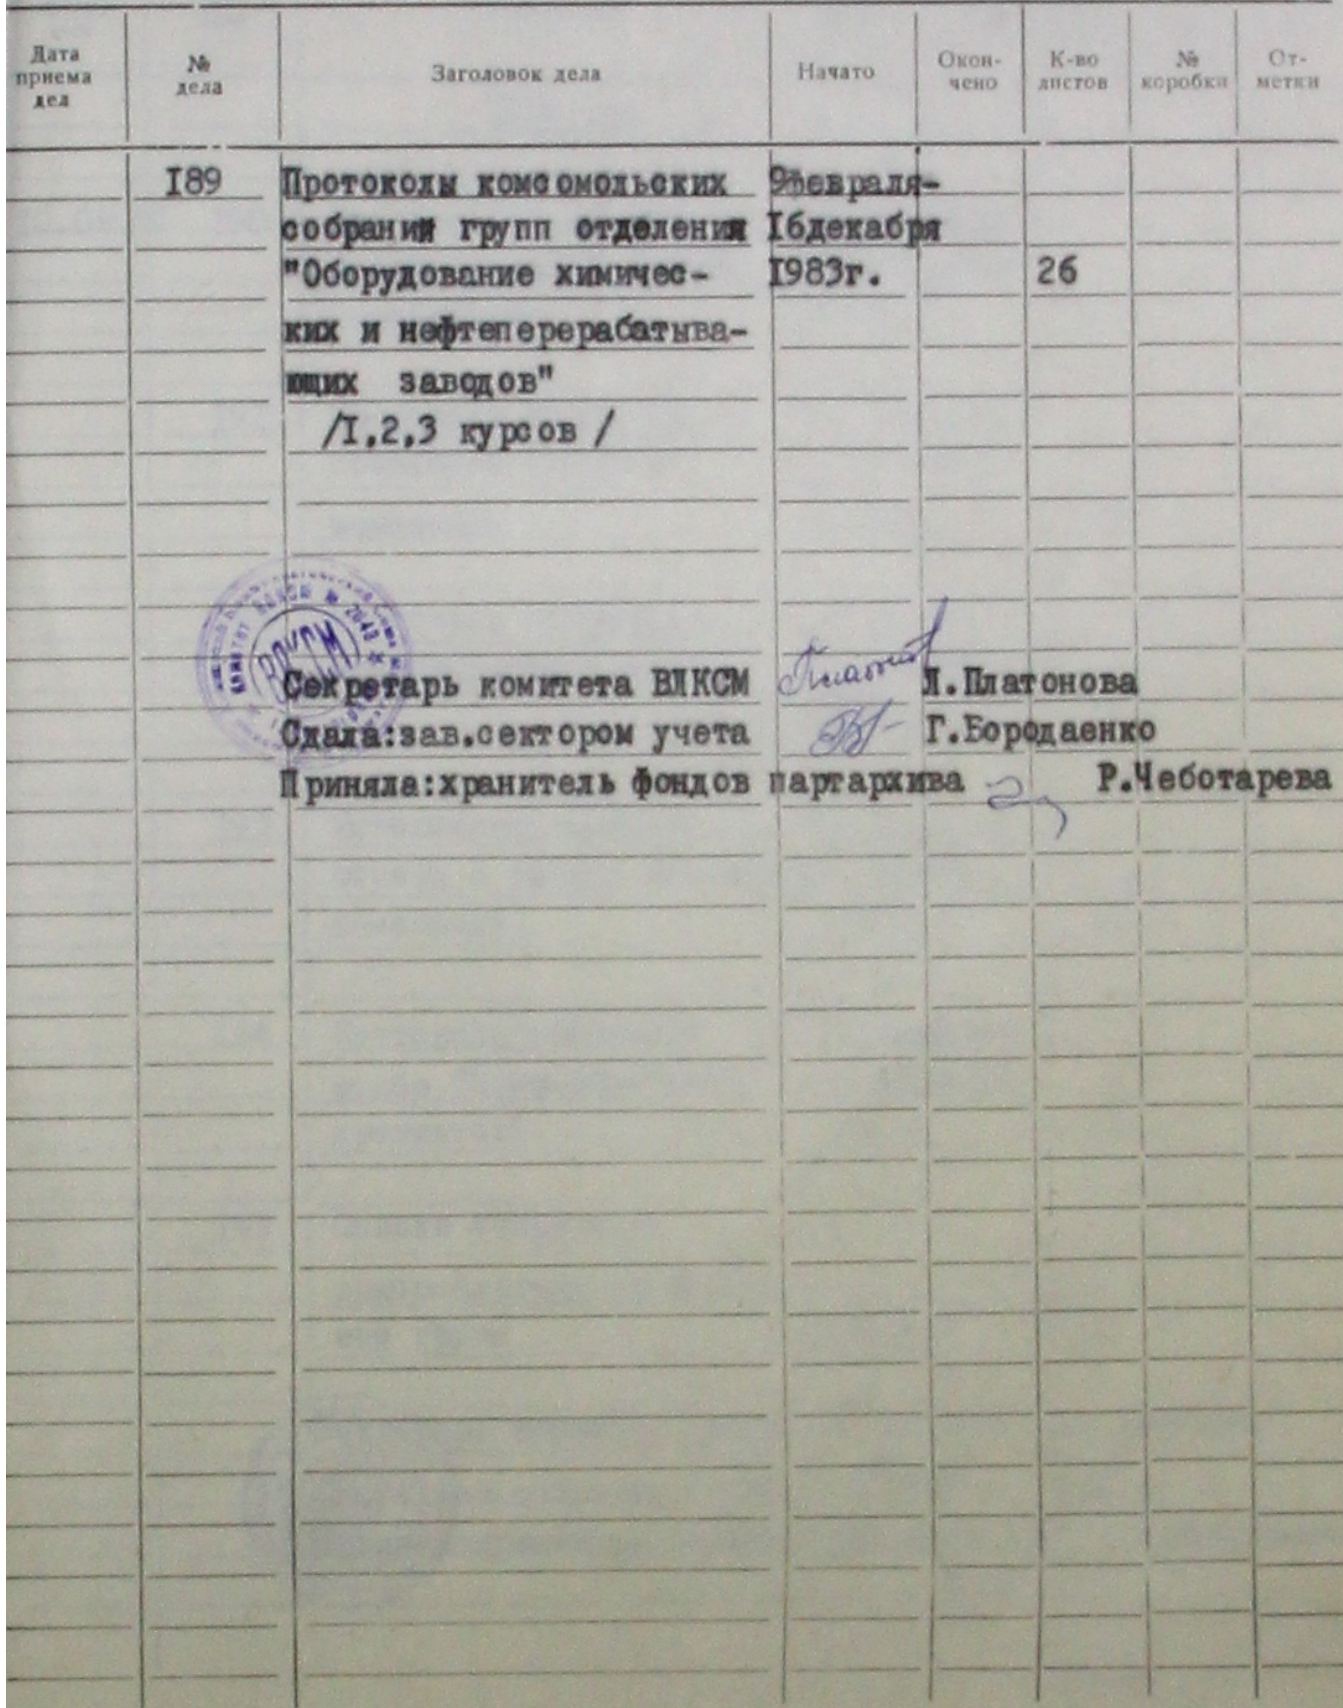 Дата приема дел
№ дела
Заголовок дела
Начато
Окон-чено
К-во листов
№ коробки
От-метки
I89 Протоколы комсомольских 9февраля-
собраний групп отделения I6декабря
"Оборудование химичес- I983г. 26
ких и нефтеперерабатыва-
ющих заводов"
/I,2,3 курсов /
ВЛКСМ
Секретарь комитета ВЛКСМ Л.Платонова
Сдала:зав.сектором учета Г.Бородаенко
Приняла:хранитель фондов партархива Р.Чеботарева